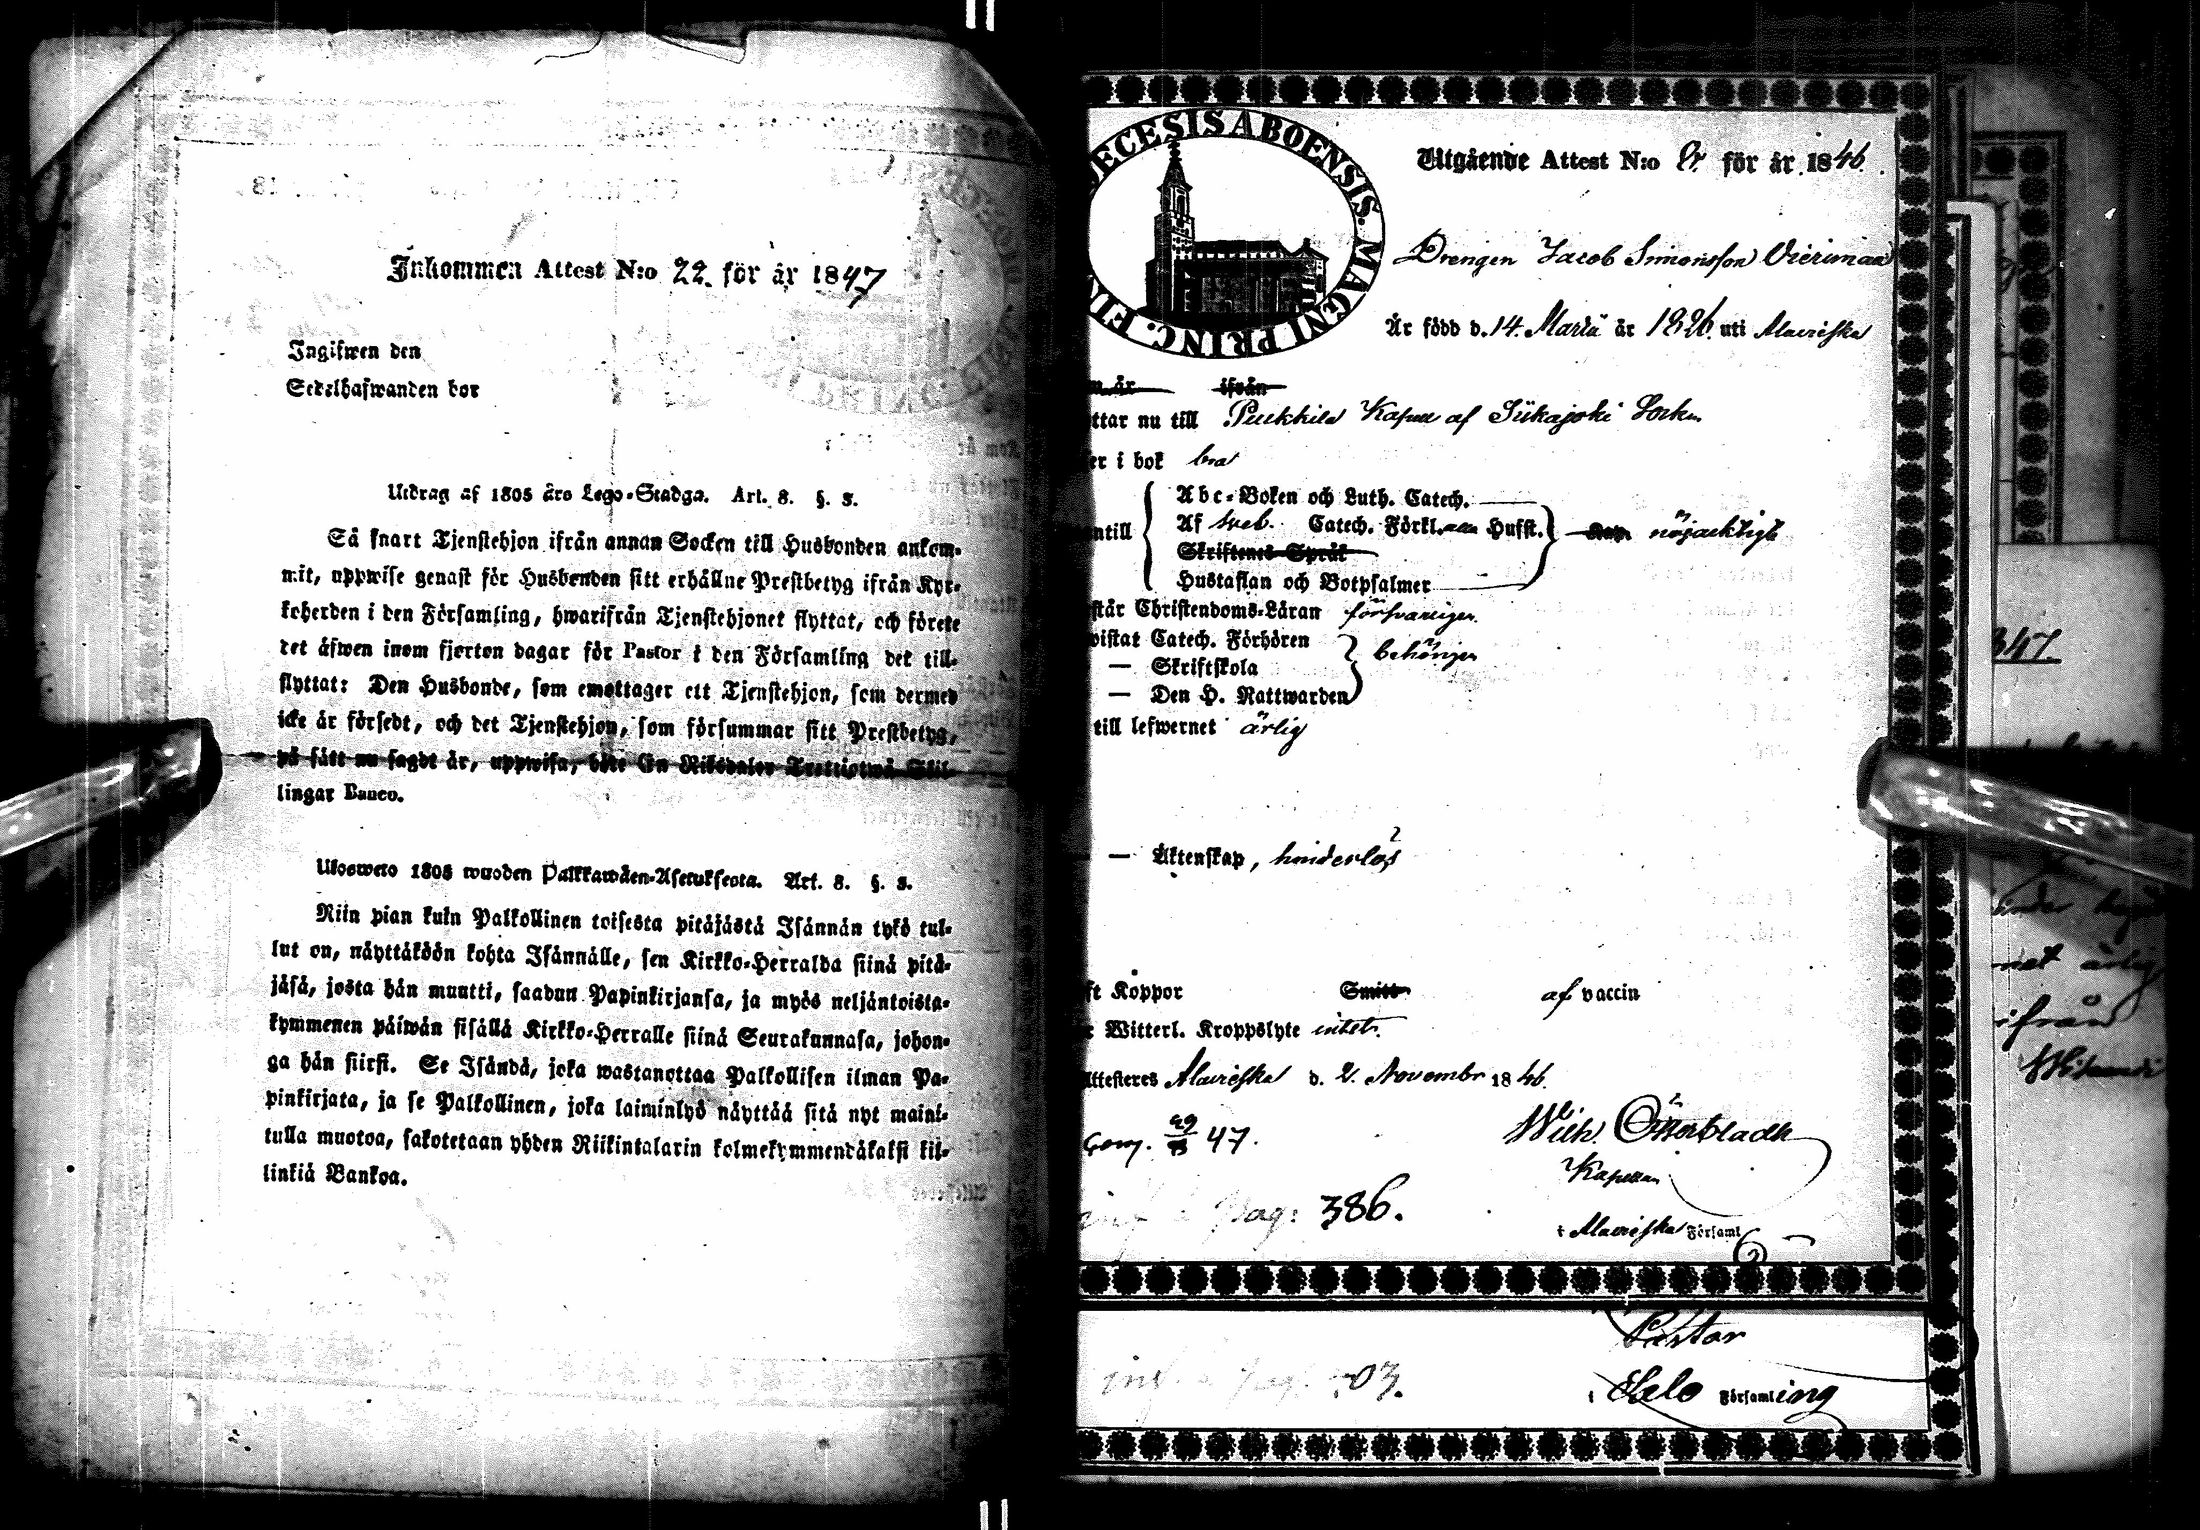 Inkommen Attest N:o 22. för år 1847
Ingifwen den
Sedelhafwanden bor
Utdrag af 1805 års Lego-Stadga. Art. 8. §. 3.
Så snart Tjenstehjon ifrån annan Socken till Husbonden ankom-
mit, uppwise genast för Husbonden sitt erhållne Prestbetyg ifrån Kyr-
koherden i den Församling, hwarifrån Tjenstehjonet flyttat, och förete
det äfwen inom fjorton dagar för Pastor i den Församling det till-
flyttat: Den Husbonde, som emottager ett Tjenstehjon, som dermed
icke är försedt, och det Tjenstehjon, som försummar sitt Prestbetyg,
på sätt nu sagdt är, uppwisa, böte En Riksdaler Trettiotwå Skil-
lingar Banco.
Uloswето 1805 wuoden Palkkawäen-Asetuksesta. Art. 8. §. 3.
Niin pian kuin Palkollinen toisesta pitäjästä Isännän tykö tul-
lut on, näyttäköön kohta Isännälle, sen Kirkko-Herralda siinä pitä-
jäsä, josta hän muutti, saadun Papinkirjansa, ja myös neljäntoista-
kymmenen päiwän sisällä Kirkko-Herralle siinä Seurakunnasa, johon-
ga hän siirsi. Se Isändä, joka wastanottaa Palkollisen ilman Pa-
pinkirjata, ja se Palkollinen, joka laiminlyö näyttää sitä nyt maini-
tulla muotoa, sakotetaan yhden Riikintalarin kolmekymmendäkaksi kil-
linkiä Bankoa.
ECESIS ABOENSIS. MAGNI PRINC. FIN
Utgående Attest N:o för år 1846.
Drengen Jacob Simonsson Vierimaa
Är född d. 14. Martii år 1826. uti Alavieska
m år ifrån
ttar nu till Pulkkila Kapell af Siikajoki Sockn
er i bok bra
Abc-Boken och Luth. Catech.
ntill Af Sveb. Catech. Förkl. Hufst. nöjacktigt
Skriftenes Språk
Hustaflan och Botpsalmer
står Christendoms-Läran försvarligen
wistat Catech. Förhören
— Skriftskola behörigen
— Den H. Nattwarden
till lefwernet ärlig
— Äktenskap, hinderlös
ft Koppor Smitt af vaccin
r Witterl. Kroppslyte intet.
Attesteres Alavieska d. 2. Novembr 1846.
Wilh. Österbladh
47.
Kapellan
pag: 386.
i Alavieska Församl
Pastor
03.
i Församling
347.
ifrån